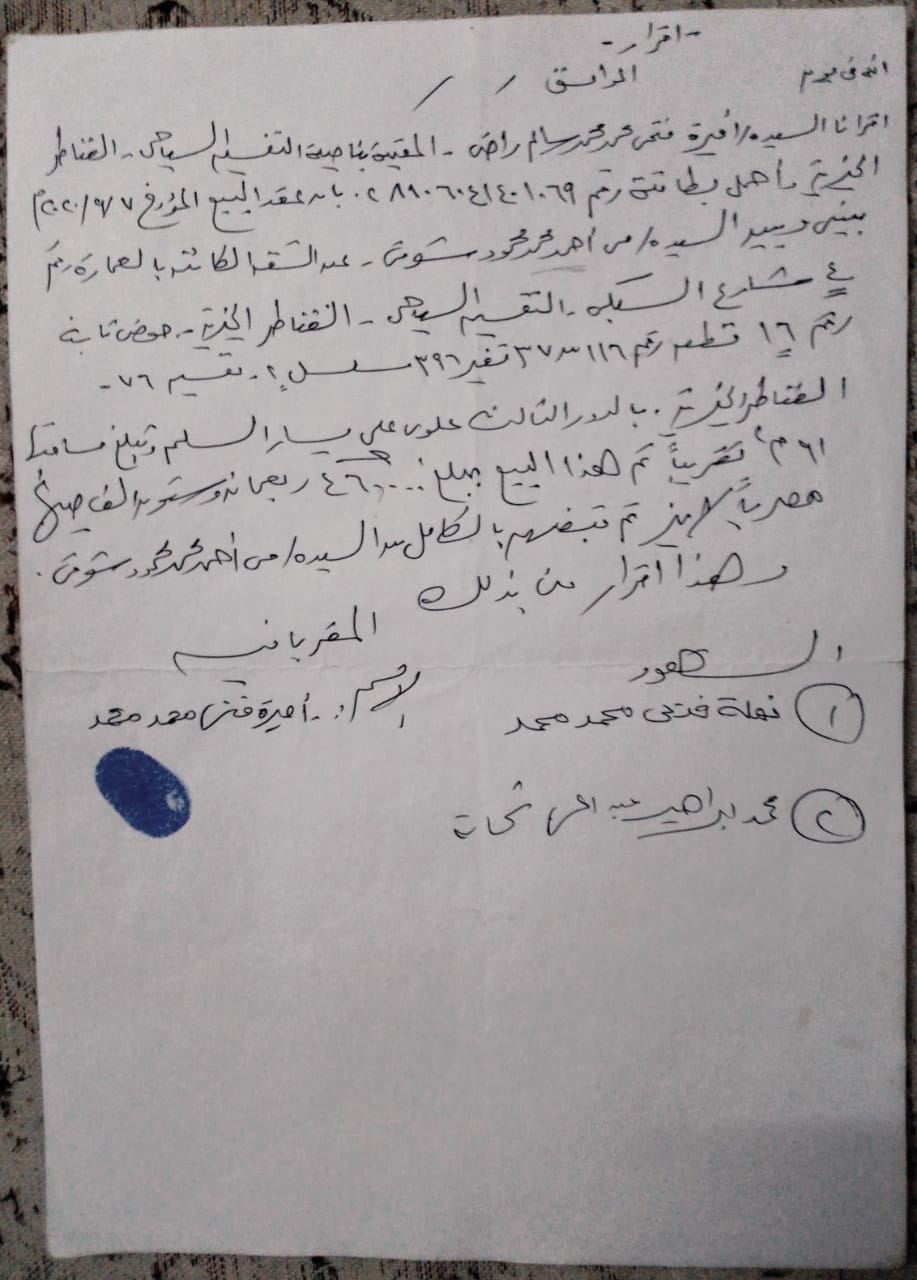 - اقرار -
انه فى يوم الموافق / /
اقر انا السيده/ أميرة فتحى محمد محمد سالم راضى - المقيمة بناصية التقسيم السياحى - القناطر
الخيرية وأحمل بطاقة رقم ٢٨٩٠٦٠٤١٤٠١٠٦٩ بان عقد البيع المؤرخ ٢٠٢٠/٩/٧م
بينى وبين السيده/ منى أحمد محمد محمود شوقى - عن الشقه الكائنه بالعمارة رقم
٤ شارع السكه - التقسيم السياحى - القناطر الخيرية - حوض
رقم ١٦ قطعه رقم ١١٦ من ٣٧ ٣٩٦ مسلسل ٢ - تقسيم ٧٦ -
القناطر الخيرية . بالدور الثالث علوى على يسار السلم وتبلغ مساحتها
٦١ م٢ تقريباً تم هذا البيع بمبلغ ٤٦٠,٠٠٠ ربعمائه وستون الف جنيهاً
مصرياً لاغير تم قبضهم بالكامل من السيده/ منى أحمد محمد محمود شوقى .
وهذا اقرار منى بذلك
المقر بما فيه
الشهود
الاسم :- أميرة فتحى محمد محمد
١ نهلة فتحى محمد محمد
٢ محمد ابراهيم عبد شحاتة